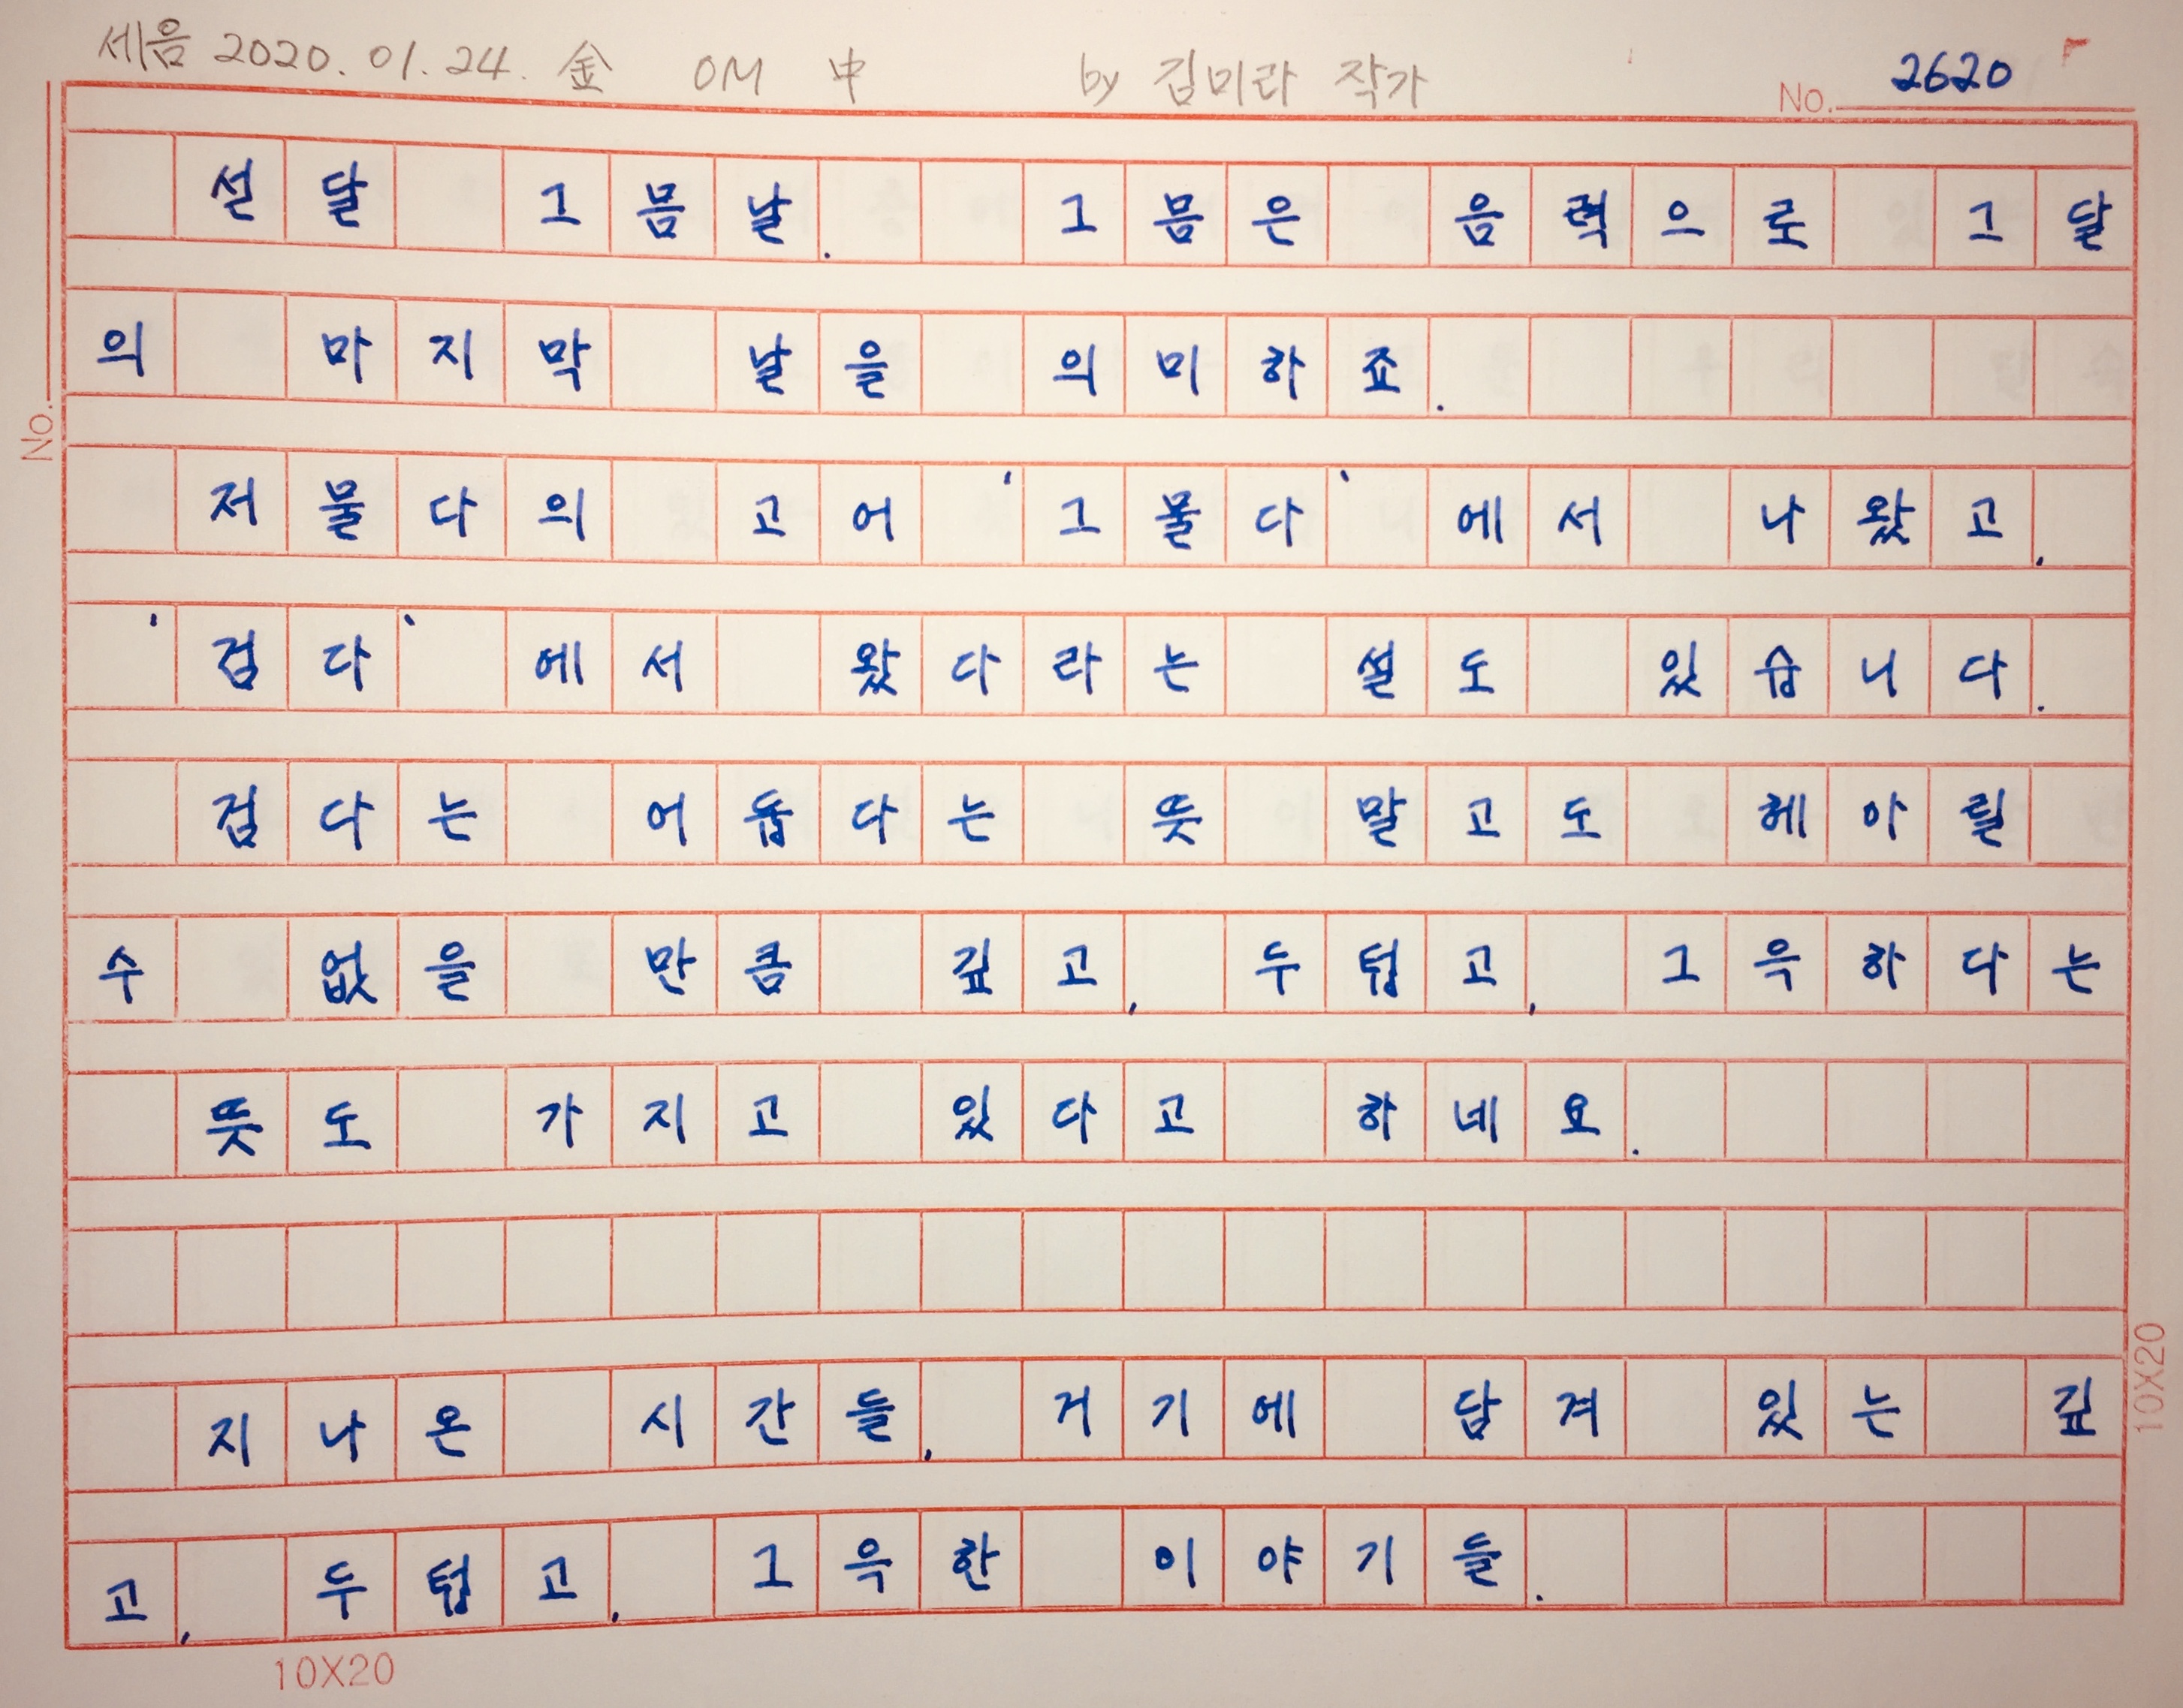 세음 2020. 01. 24. 金 OM 中 by 김미라 작가
No. 2620
섣달 그믐날. 그믐은 음력으로 그달
의 마지막 날을 의미하죠.
No.
저물다의 고어 '그물다'에서 나왔고,
'검다'에서 왔다라는 설도 있습니다.
검다는 어둡다는 뜻 말고도 헤아릴
수 없을 만큼 깊고, 두텁고, 그윽하다는
뜻도 가지고 있다고 하네요.
지나온 시간들, 거기에 담겨 있는 깊
고, 두텁고, 그윽한 이야기들.
10X20
10X20